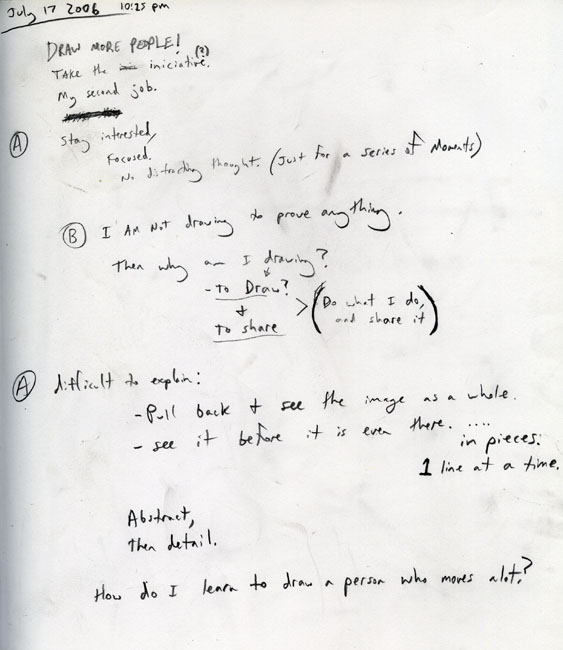 July 17 2006 10:25 pm
DRAW MORE PEOPLE!
(?)
Take the iniciative.
My second job.
(A) Stay interested,
Focused.
No distracting thought. (Just for a series of Moments)
(B) I AM Not drawing to prove anything.
Then why am I drawing?
- to Draw?
+
to share
> (Do what I do, and share it)
(A) difficult to explain:
- Pull back + see the image as a whole.
- see it before it is even there. ....
in pieces.
1 line at a time.
Abstract,
then detail.
How do I learn to draw a person who moves alot?